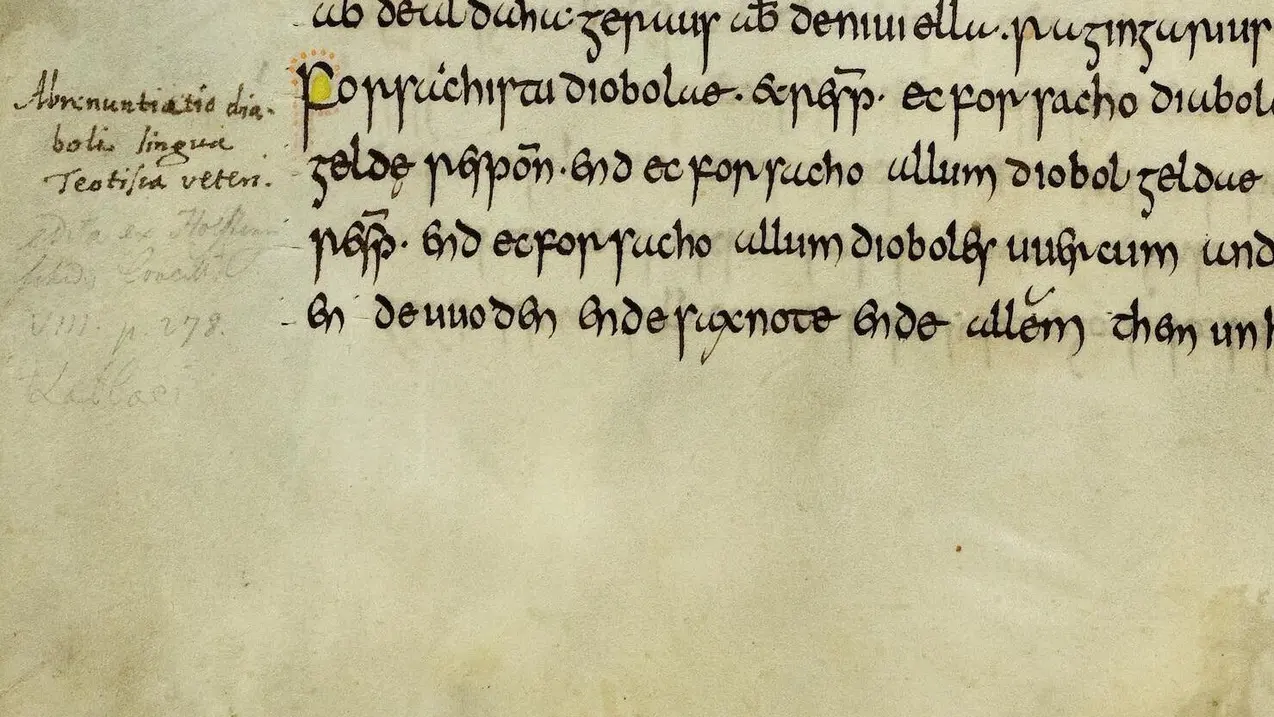 ab deuldahu· geruuuſ ab̄ deniuiella· raginga ruuſ
Forſachiſtu diobolae· & reſp̄· ec forſacho diabol
geldę reſpon̄· end ec forſacho allum diobol geldae
reſp̄· end ec forſacho allum dioboleſ uuercum und
en de uuoden ende ſaxnote ende allem then unh
Abrenuntiatio dia-
boli lingua
Teotisca veteri.
VIII. p. 278.